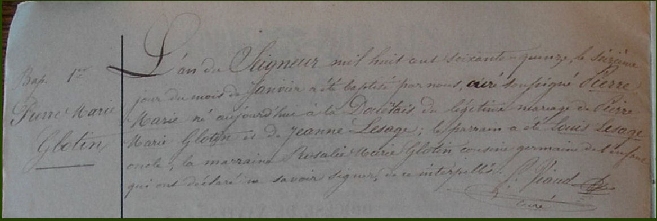 Bap. 1er
Pierre Marie
Glotin
L'an du Seigneur mil huit cent soixante-quinze, le sixième
jour du mois de Janvier a été baptisé par nous, curé soussigné Pierre
Marie né aujourd'hui à la du légitime mariage de Pierre
Marie Glotin et de Jeanne Lesage; le parrain a été Louis Lesage
oncle; la marraine Rosalie Marie Glotin cousine germaine de l'enfant
qui ont déclaré ne savoir signer, de ce interpellés.
curé